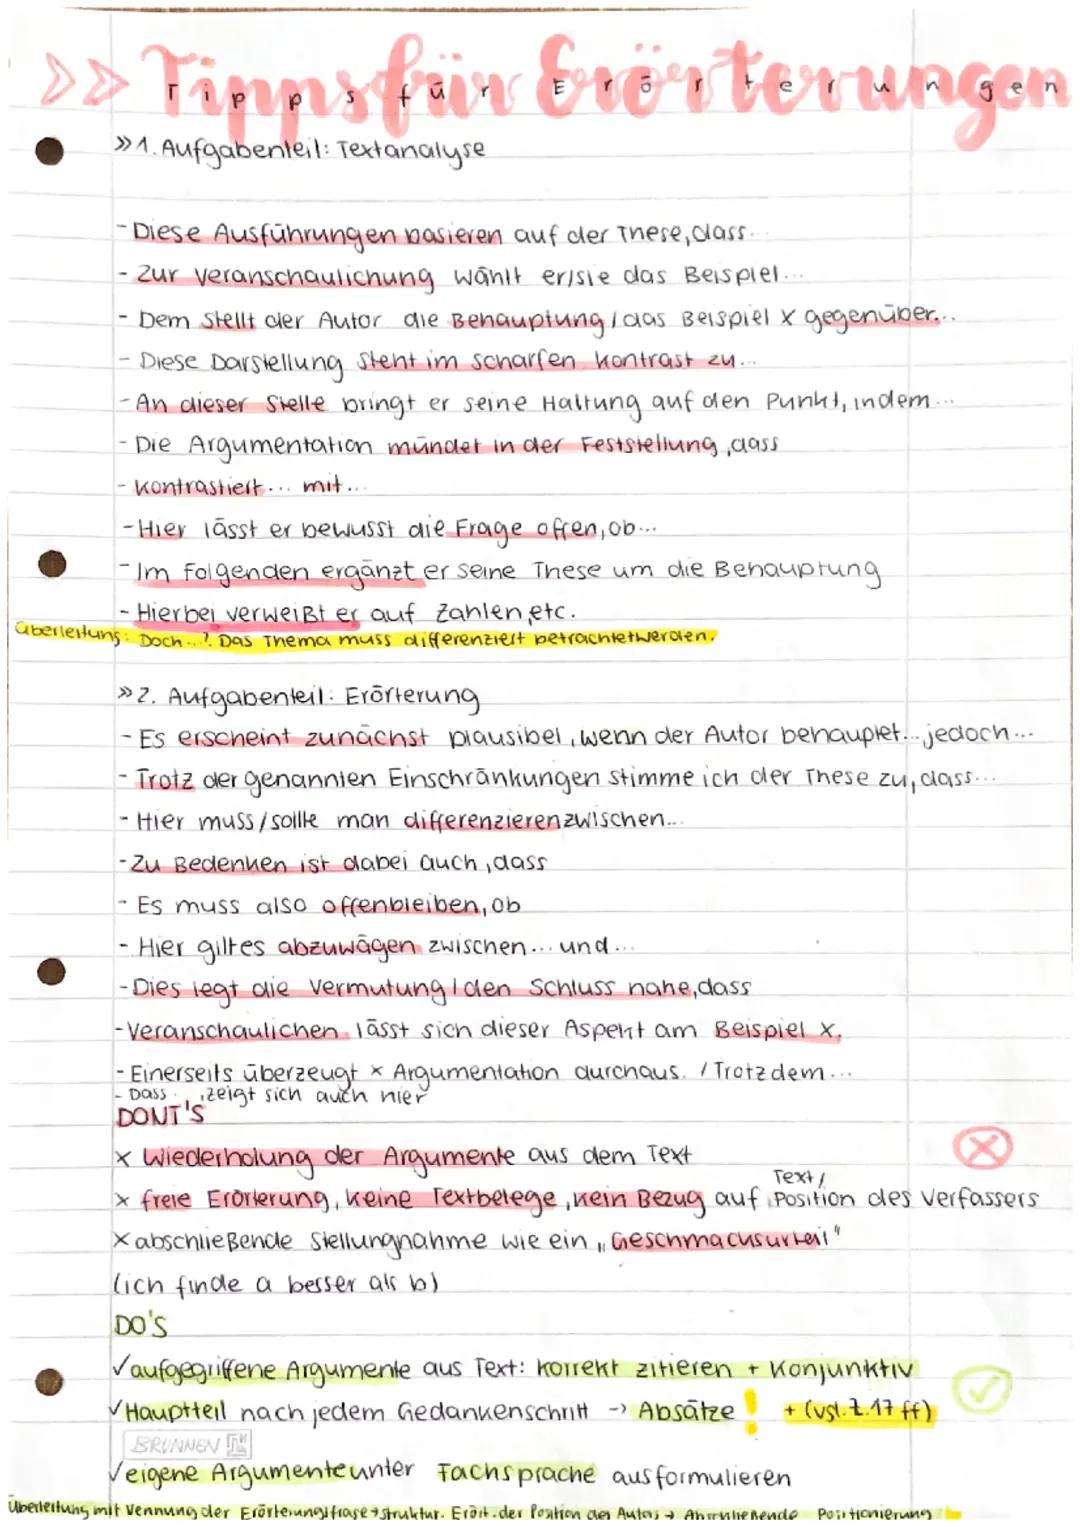 >> Tipps für Erörterungen
>> 1. Aufgabenteil: Textanalyse
- Diese Ausführungen basieren auf der These, dass...
- Zur Veranschaulichung wählt er/sie das Beispiel...
- Dem stellt der Autor die Behauptung / das Beispiel X gegenüber...
- Diese Darstellung steht im scharfen Kontrast zu...
- An dieser Stelle bringt er seine Haltung auf den Punkt, indem...
- Die Argumentation mündet in der Feststellung, dass
- kontrastiert... mit...
- Hier lässt er bewusst die Frage offen, ob...
- Im Folgenden ergänzt er seine These um die Behauptung
- Hierbei verweißt er auf Zahlen, etc.
Überleitung: Doch...? Das Thema muss differenziert betrachtet werden.
>> 2. Aufgabenteil: Erörterung
- Es erscheint zunächst plausibel, wenn der Autor behauptet... jedoch...
- Trotz der genannten Einschränkungen stimme ich der These zu, dass...
- Hier muss/sollte man differenzieren zwischen...
- Zu Bedenken ist dabei auch, dass
- Es muss also offenbleiben, ob
- Hier gilt es abzuwägen zwischen... und...
- Dies legt die Vermutung / den Schluss nahe, dass
- Veranschaulichen lässt sich dieser Aspekt am Beispiel X.
- Einerseits überzeugt x Argumentation durchaus. / Trotzdem...
- Dass , zeigt sich auch hier
DONT'S
x Wiederholung der Argumente aus dem Text
x freie Erörterung, keine Textbelege, kein Bezug auf Text / Position des Verfassers
x abschließende Stellungnahme wie ein „Geschmacksurteil"
(ich finde a besser als b)
DO'S
✓ aufgegriffene Argumente aus Text: korrekt zitieren + Konjunktiv
✓ Hauptteil nach jedem Gedankenschritt -> Absätze ! + (vgl. Z. 17 ff)
BRUNNEN
✓ eigene Argumente unter Fachsprache ausformulieren
Überleitung mit Nennung der Erörterungsfrage + struktur. Erört. der Position des Autors → Abschließende Positionierung